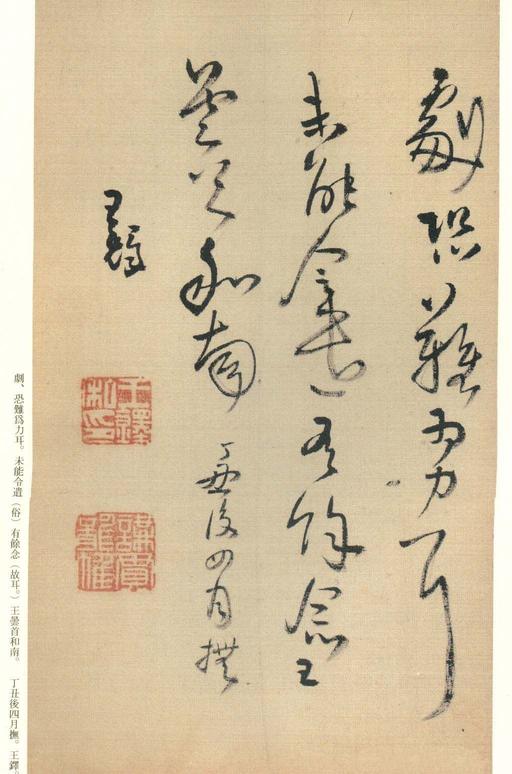 劇恐難為力耳
未能令遣有餘念王
曇首和南 丁丑後四月撫
王鐸
王鐸私印
劇、恐難爲力耳。未能令遣（俗）有餘念（故耳。）王曇首和南。　丁丑後四月撫。王鐸。